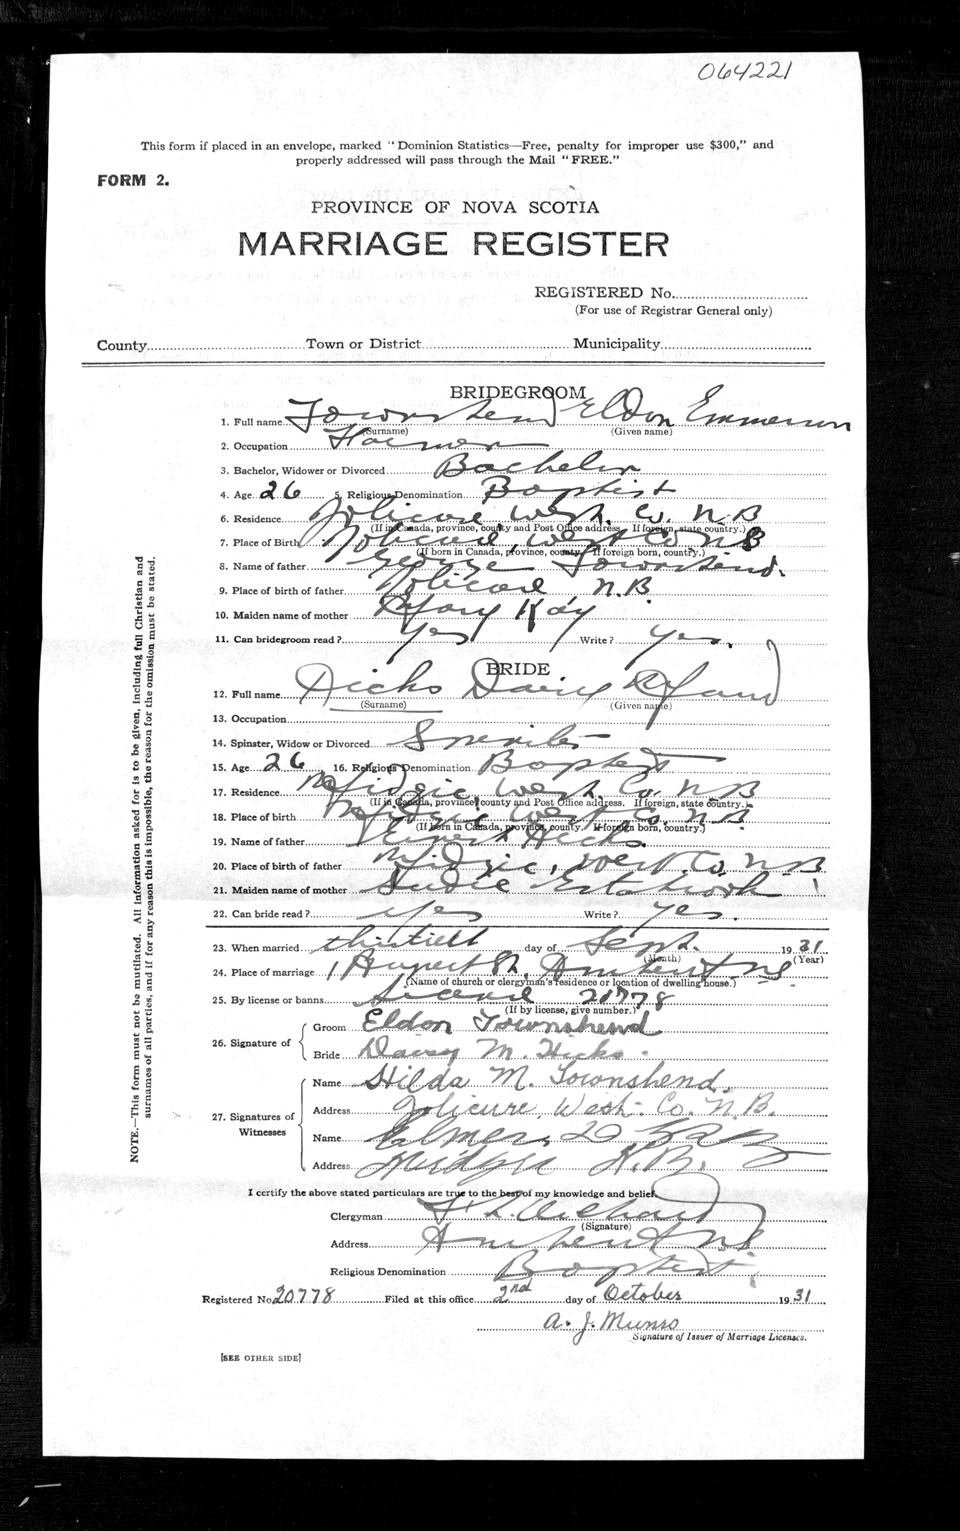 064221
This form if placed in an envelope, marked "Dominion Statistics—Free, penalty for improper use $300," and
properly addressed will pass through the Mail "FREE."
FORM 2.
PROVINCE OF NOVA SCOTIA
MARRIAGE REGISTER
REGISTERED No.
(For use of Registrar General only)
County Town or District Municipality
BRIDEGROOM
1. Full name Townshend Eldon Emmerson
(Surname) (Given name)
2. Occupation Farmer
3. Bachelor, Widower or Divorced Bachelor
4. Age 26 5. Religious Denomination Baptist
6. Residence Jolicure West. Co. N.B
(If in Canada, province, county and Post Office address. If foreign, state country.)
7. Place of Birth Jolicure, West Co NB
(If born in Canada, province, county. If foreign born, country.)
8. Name of father George Townshend.
9. Place of birth of father Jolicure N.B.
10. Maiden name of mother Mary Kay
11. Can bridegroom read? Yes Write? Yes.
BRIDE
12. Full name Hicks Daisy
(Surname) (Given name)
13. Occupation
14. Spinster, Widow or Divorced Spinster
15. Age 26 16. Religious Denomination Baptist
17. Residence Midgic West. Co. N B
(If in Canada, province, county and Post Office address. If foreign, state country.)
18. Place of birth Midgic West Co. N.B.
(If born in Canada, province, county. If foreign born, country.)
19. Name of father Hicks.
20. Place of birth of father Midgic, West Co NB
21. Maiden name of mother Sudie Estabrook
22. Can bride read? Yes Write? Yes.
23. When married thirtieth day of Sept. 19 31
(Month) (Year)
24. Place of marriage 1 Rupert St, Amherst NS
(Name of church or clergyman's residence or location of dwelling house.)
25. By license or banns License 20778
(If by license, give number.)
26. Signature of
Groom Eldon Townshend
Bride Daisy M. Hicks.
27. Signatures of Witnesses
Name Hilda M. Townshend.
Address Jolicure, West. Co. N.B.
Name Elmer
Address Midgic N.B.
I certify the above stated particulars are true to the best of my knowledge and belief.
Clergyman
(Signature)
Address Amherst NS
Religious Denomination Baptist
Registered No. 20778 Filed at this office 2nd day of October 19 31
A. J. Munro
Signature of Issuer of Marriage Licenses.
[SEE OTHER SIDE]
NOTE.—This form must not be mutilated. All information asked for is to be given, including full Christian and
surnames of all parties, and if for any reason this is impossible, the reason for the omission must be stated.